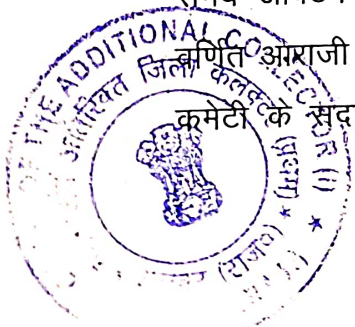 वर्णित आराजी
कमेटी के संद
THE ADDITIONAL COLLECTOR (I)
अतिरिक्त जिला कलेक्टर (प्रथम)
(राज०)